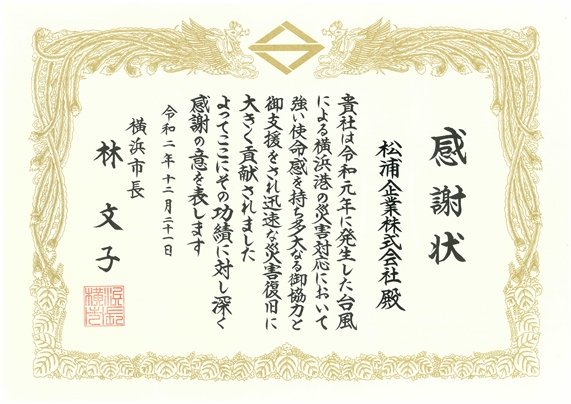 感謝状
松浦企業株式会社殿
貴社は令和元年に発生した台風
による横浜港の災害対応において
強い使命感を持ち多大なる御協力と
御支援をされ迅速な災害復旧に
大きく貢献されました
よってここにその功績に対し深く
感謝の意を表します
令和二年十二月二十一日
横浜市長
林文子